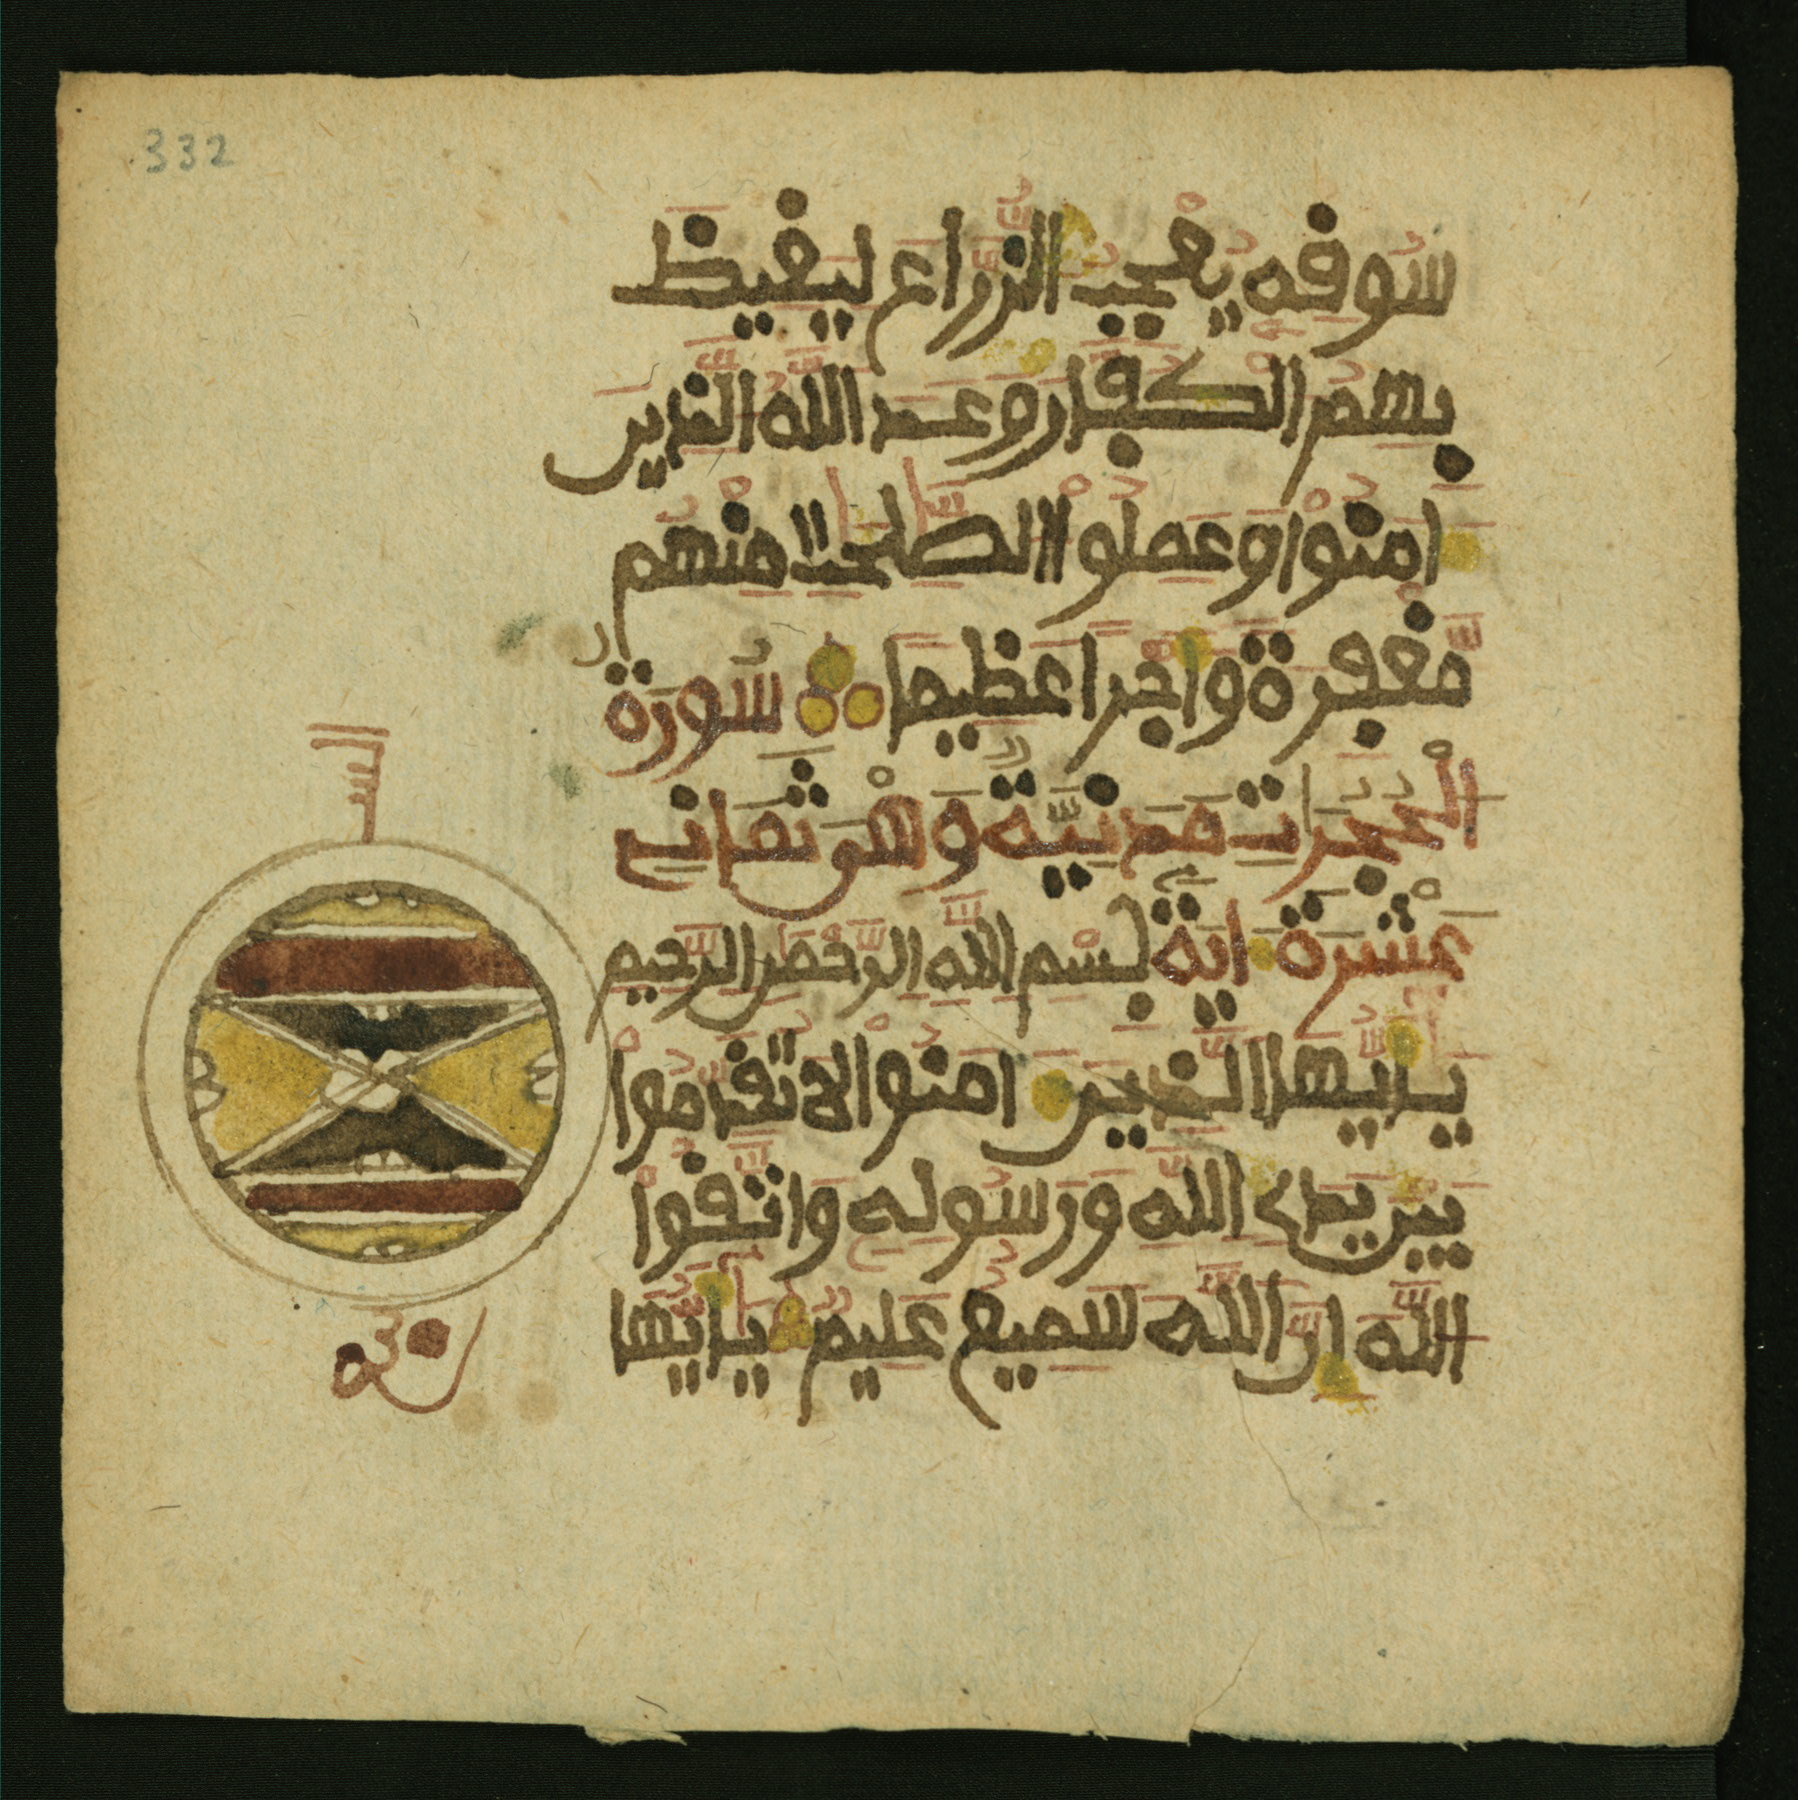 332
سُوفِهِ يُعْجِبُ الزُّرَّاعَ لِيَغِيظَ
بِهِمُ الْكُفَّارَ وَعَدَ اللَّهُ الَّذِينَ
ءَامَنُوا وَعَمِلُوا الصَّٰلِحَٰتِ مِنْهُم
مَّغْفِرَةً وَأَجْرًا عَظِيمًا سُورَةُ
الْحُجُرَاتِ مَدَنِيَّةٌ وَهْيَ ثَمَانِي
عَشْرَةَ ءَايَةً بِسْمِ اللَّهِ الرَّحْمَٰنِ الرَّحِيمِ
يَٰأَيُّهَا الَّذِينَ ءَامَنُوا لَا تُقَدِّمُوا
بَيْنَ يَدَيِ اللَّهِ وَرَسُولِهِ وَاتَّقُوا
اللَّهَ إِنَّ اللَّهَ سَمِيعٌ عَلِيمٌ يَٰأَيُّهَا